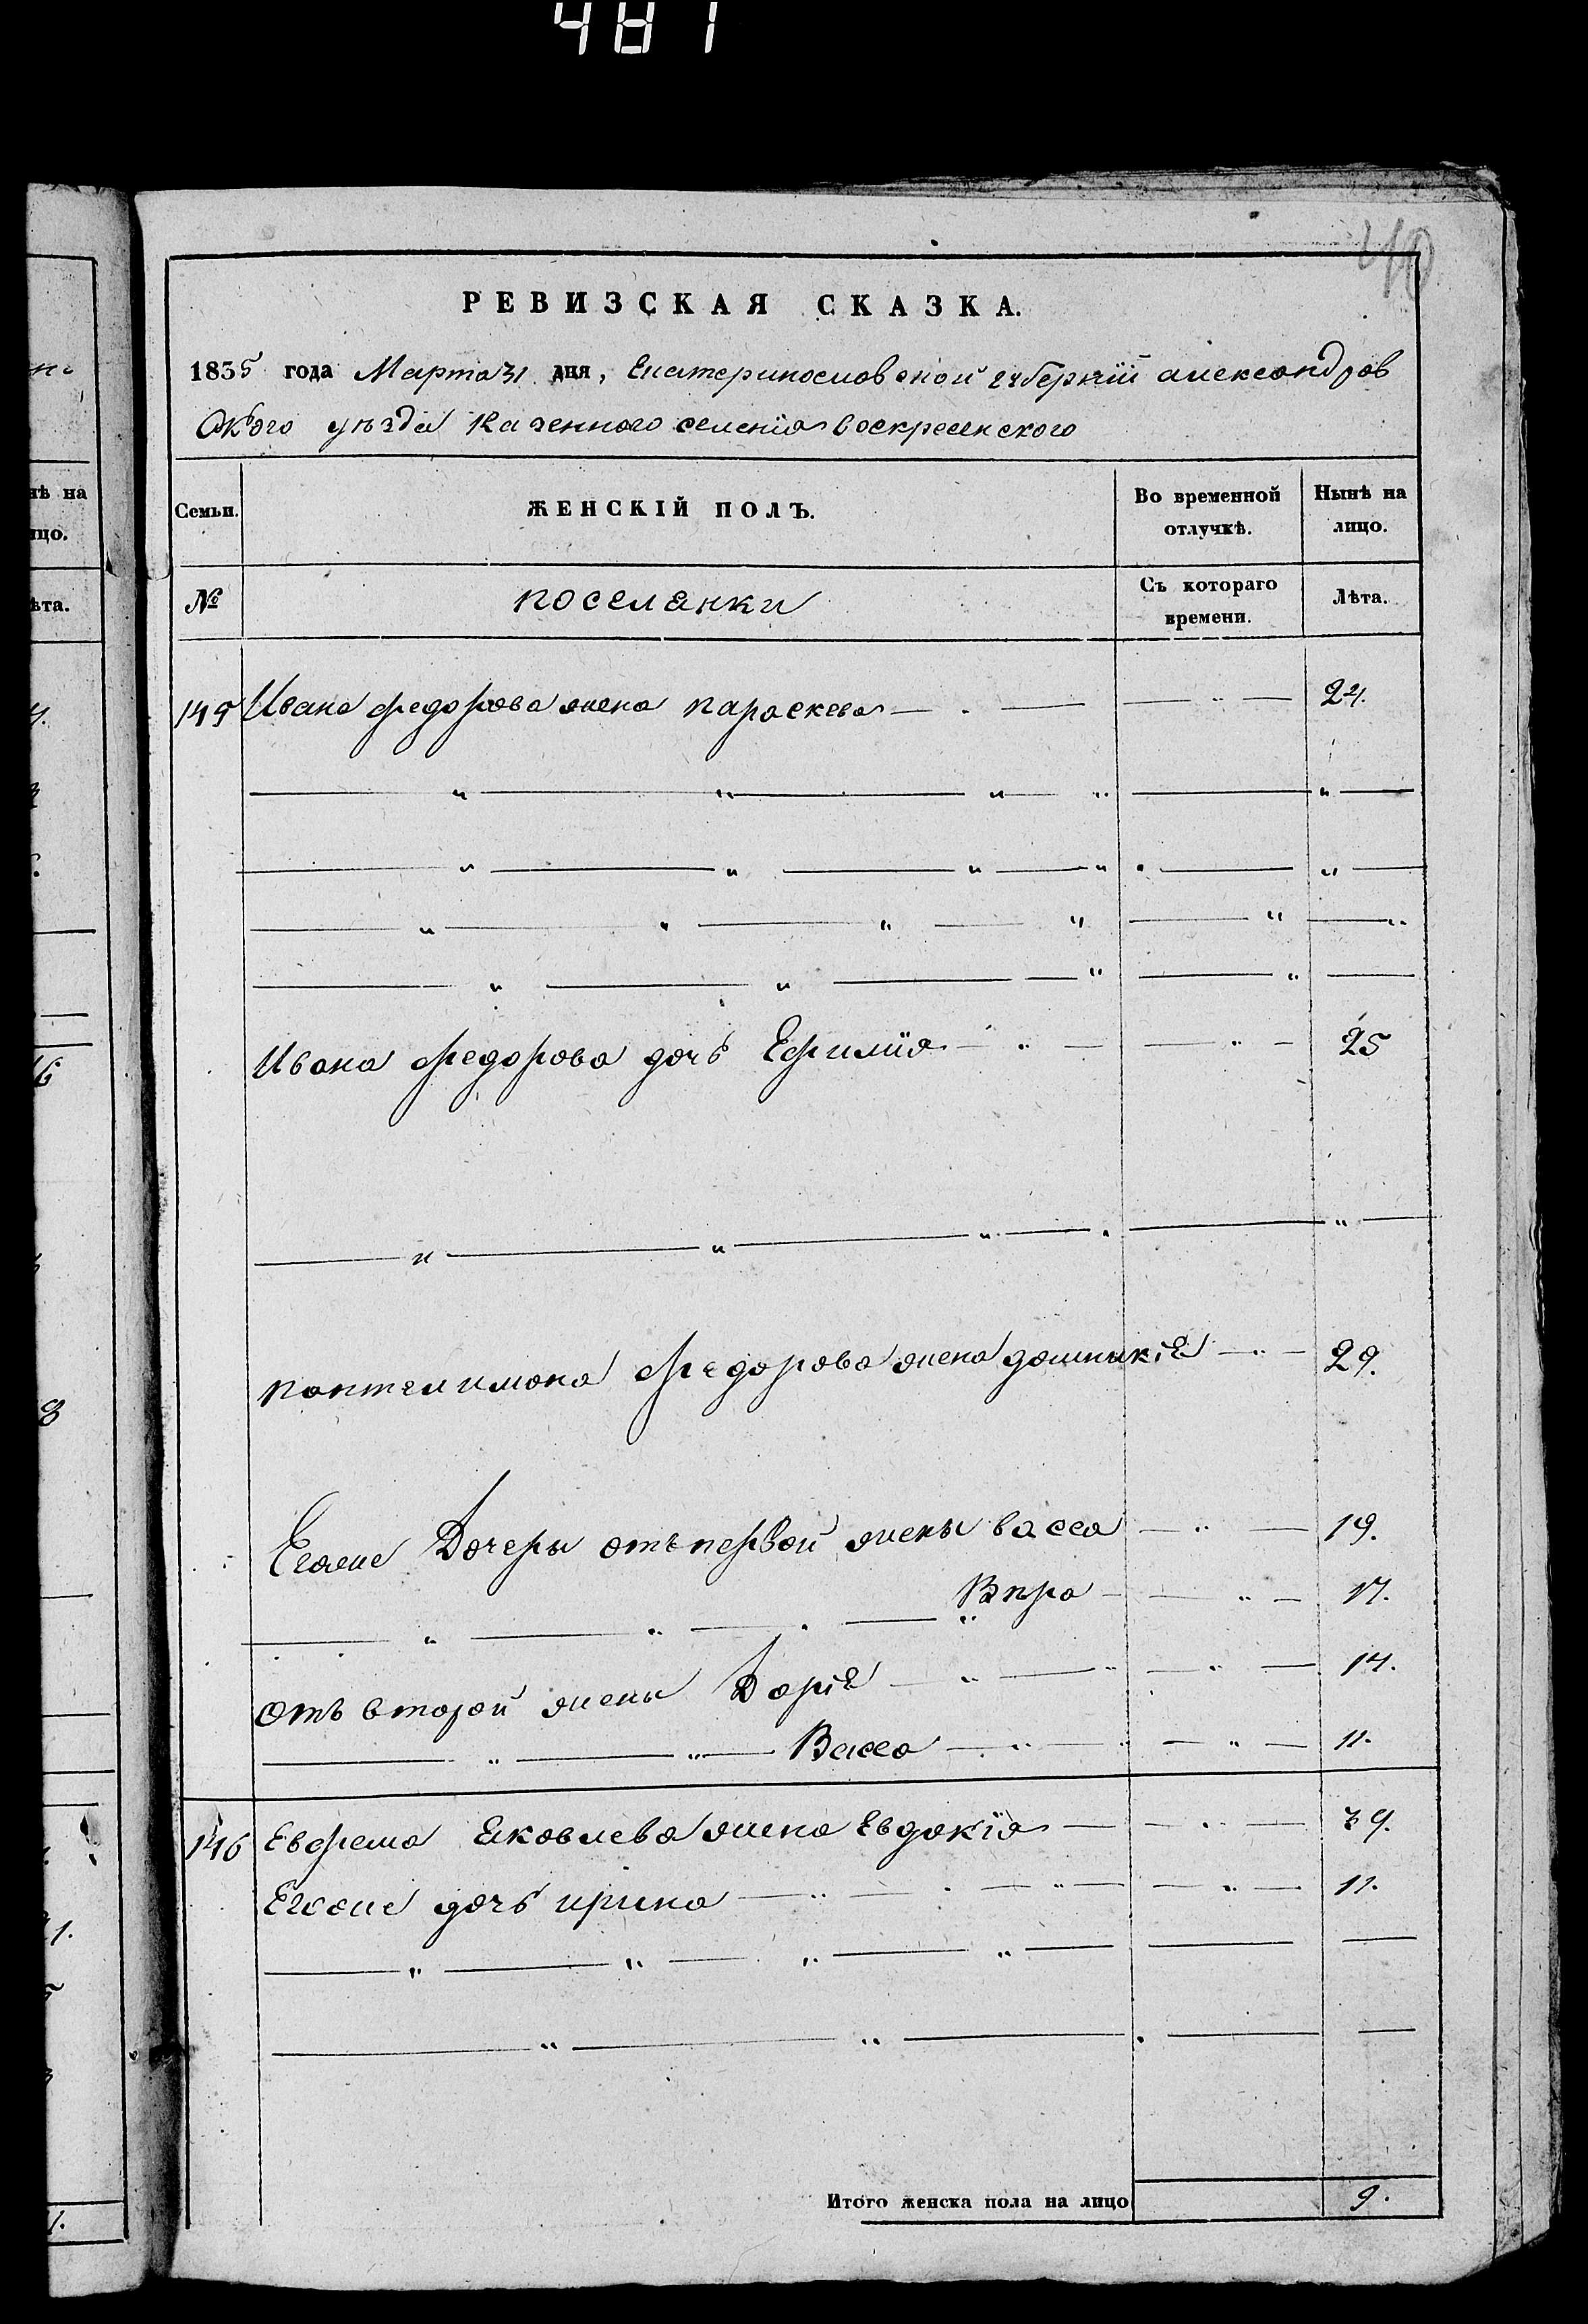 481
240
РЕВИЗСКАЯ СКАЗКА.
1835 года Марта 31 дня, Екатеринославской губернїи александров
скаго уѣзда казенного селенїя воскресенского
Семьи. ЖЕНСКІЙ ПОЛЪ. Во временной отлучкѣ. Нынѣ на лицо.
№ поселянки Съ котораго времени. Лѣта.
145 Ивана федорова жена параскева — " — 24.
Ивана федорова дочь Ефимїя — " — 25
пантелимона федорова жена домникїя — " — 29.
Егоже Дочеры отъ первой жены васса — " — 19.
" " Впра — " — 17.
отъ второй жены Дарїя — " — 14.
" " Васса — " — 11.
146 Евфема Яковлева жена Евдокїя — " — 39.
Егоже дочь ирина — " — 11.
Итого женска пола на лицо 9.
нѣ на
ицо.
ѣта.